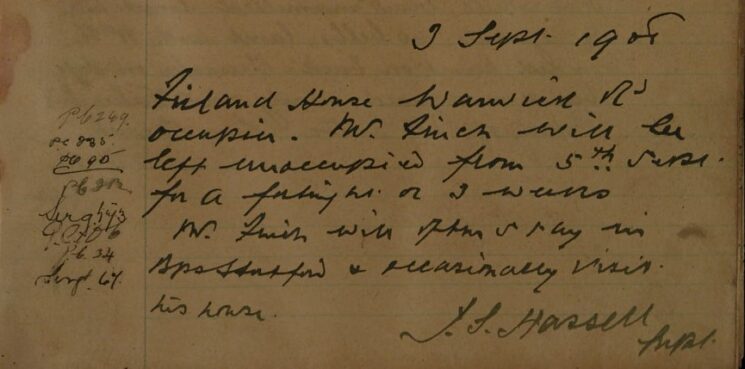 3 Sept. 1908
House Warwick Rd
occupier. Mr. Finch will be
left unoccupied from 5th Sept.
for a fortnight or 3 weeks
Mr. Finch will often stay in
& occasionally visit
his house.
J. S. Hassell
Supt.
PC 249.
PC 285
PC 90
Sergt 43
PC 34
Sergt. 67.